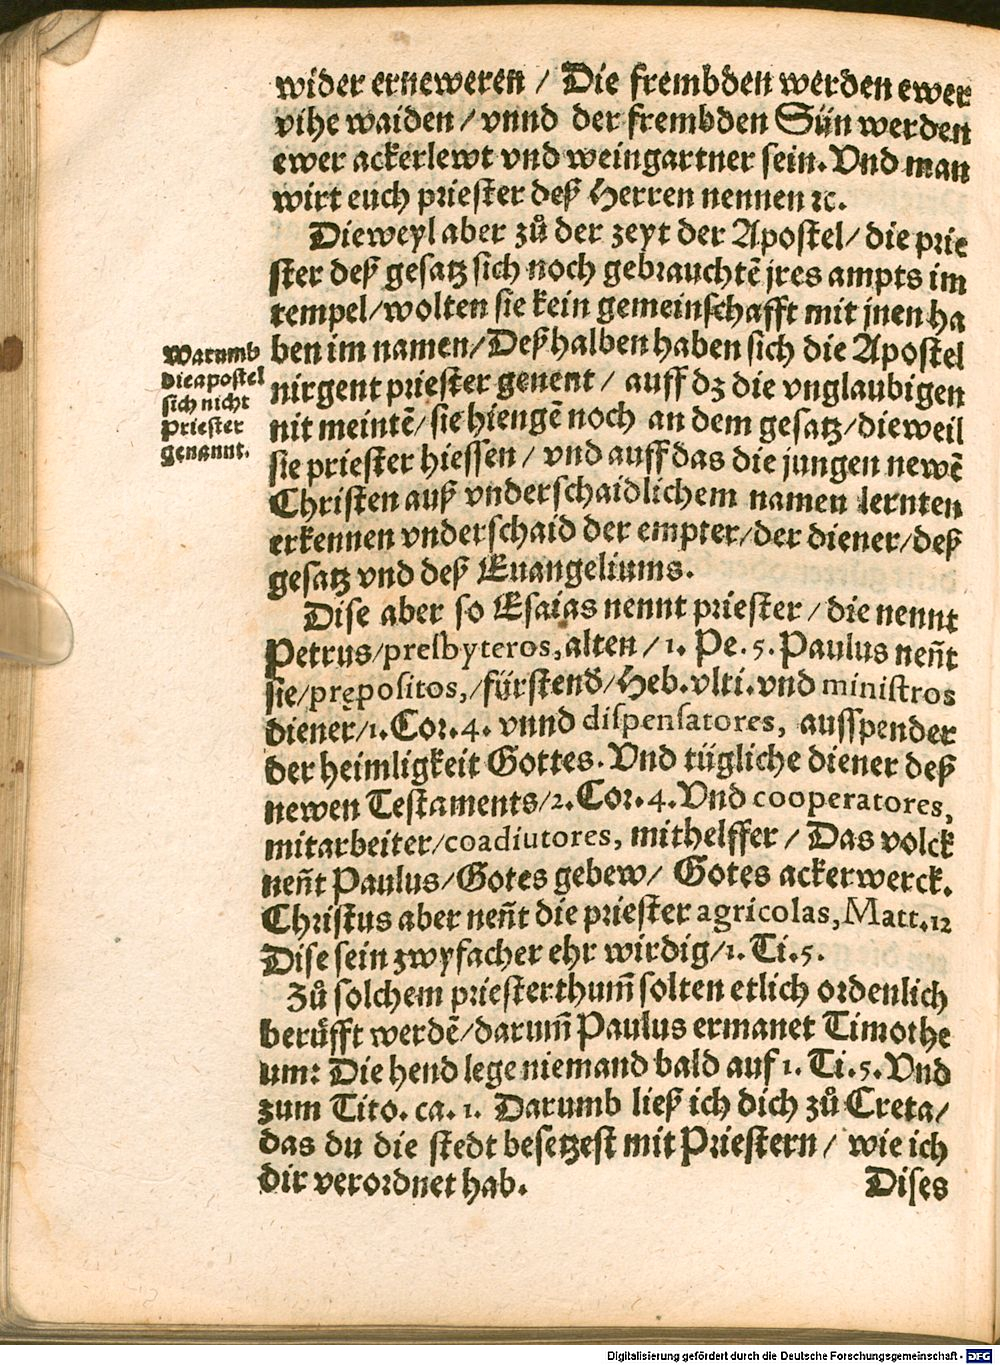 wider erneweren / Die frembden werden ewer
vihe waiden / vnnd der frembden Sün werden
ewer ackerlewt vnd weingartner sein. Vnd man
wirt euch priester deß Herren nennen ꝛc.
Dieweyl aber zů der zeyt der Apostel / die prie
ster deß gesatz sich noch gebrauchtē jres ampts im
tempel / wolten sie kein gemeinschafft mit jnen ha
ben im namen / Deßhalben haben sich die Apostel
nirgent priester genent / auff dz die vnglaubigen
nit meintē / sie hiengē noch an dem gesatz / dieweil
sie priester hiessen / vnd auff das die jungen newē
Christen auß vnderschaidlichem namen lernten
erkennen vnderschaid der empter / der diener / deß
gesatz vnd deß Euangeliums.
Warumb
die apostel
sich nicht
priester
genannt.
Dise aber so Esaias nennt priester / die nennt
Petrus / presbyteros, alten / 1. Pe. 5. Paulus neñt
sie / prępositos, / fürstend / Heb. vlti. vnd ministros
diener / 1. Cor. 4. vnnd dispensatores, ausspender
der heimligkeit Gottes. Vnd tügliche diener deß
newen Testaments / 2. Cor. 4. Vnd cooperatores,
mitarbeiter / coadiutores, mithelffer / Das volck
neñt Paulus / Gotes gebew / Gotes ackerwerck.
Christus aber neñt die priester agricolas, Matt. 12
Dise sein zwyfacher ehr wirdig / 1. Ti. 5.
Zů solchem priesterthum̄ solten etlich ordenlich
berůfft werdē / darum̄ Paulus ermanet Timothe
um: Die hend lege niemand bald auf 1. Ti. 5. Vnd
zum Tito. ca. 1. Darumb ließ ich dich zů Creta /
das du die stedt besetzest mit Priestern / wie ich
dir verordnet hab.
Dises
Digitalisierung gefördert durch die Deutsche Forschungsgemeinschaft - DFG